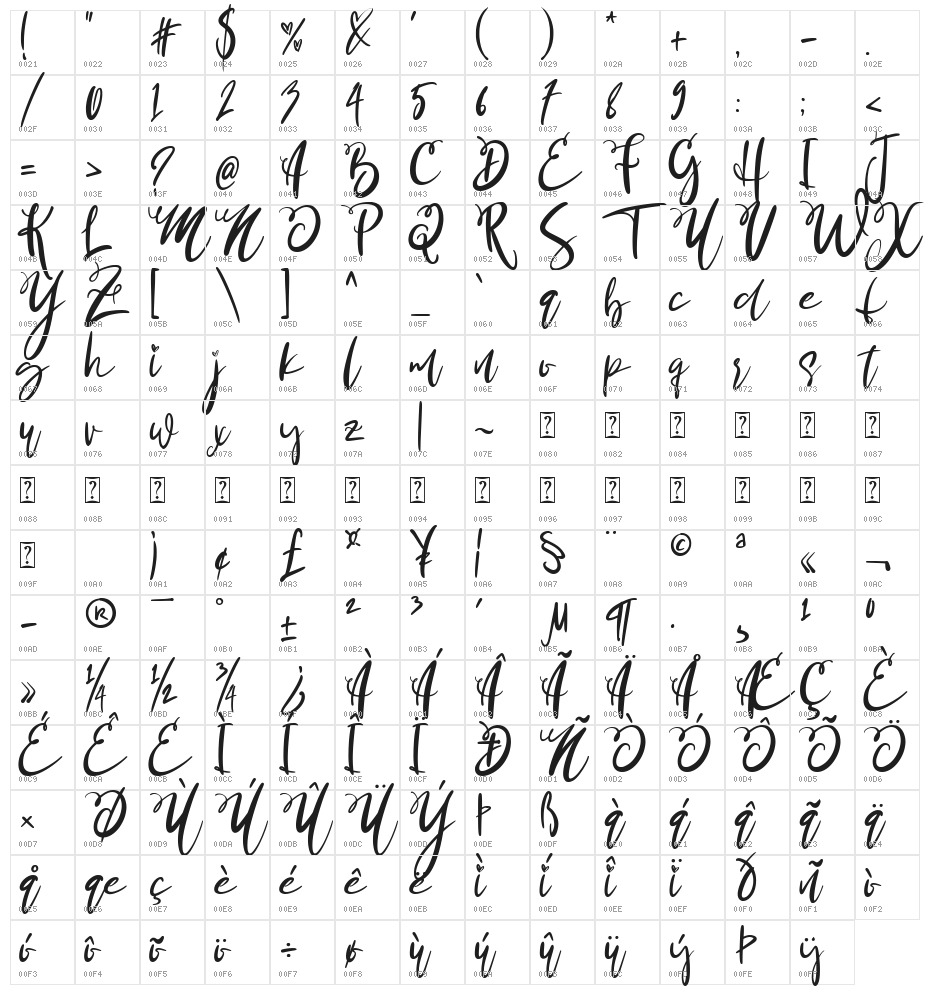 ! " # $ % & ' ( ) * + , - .
0021 0022 0023 0024 0025 0026 0027 0028 0029 002A 002B 002C 002D 002E
/ 0 1 2 3 4 5 6 7 8 9 : ; <
002F 0030 0031 0032 0033 0034 0035 0036 0037 0038 0039 003A 003B 003C
= > ? @ A B C D E F G H I J
003D 003E 003F 0040 0041 0042 0043 0044 0045 0046 0047 0048 0049 004A
K L M N O P Q R S T U V W X
004B 004C 004D 004E 004F 0050 0051 0052 0053 0054 0055 0056 0057 0058
Y Z [ \ ] ^ _ ` a b c d e f
0059 005A 005B 005C 005D 005E 005F 0060 0061 0062 0063 0064 0065 0066
g h i j k l m n o p q r s t
0067 0068 0069 006A 006B 006C 006D 006E 006F 0070 0071 0072 0073 0074
u v w x y z | ~ ? ? ? ? ? ?
0075 0076 0077 0078 0079 007A 007C 007E 0080 0082 0084 0085 0086 0087
? ? ? ? ? ? ? ? ? ? ? ? ? ?
0088 008B 008C 0091 0092 0093 0094 0095 0096 0097 0098 0099 009B 009C
? ¡ ¢ £ ¤ ¥ ¦ § ¨ © ª « ¬
009F 00A0 00A1 00A2 00A3 00A4 00A5 00A6 00A7 00A8 00A9 00AA 00AB 00AC
- ® ¯ ° ± ² ³ ´ µ ¶ · ¸ ¹ º
00AD 00AE 00AF 00B0 00B1 00B2 00B3 00B4 00B5 00B6 00B7 00B8 00B9 00BA
» ¼ ½ ¾ ¿ À Á Â Ã Ä Å Æ Ç È
00BB 00BC 00BD 00BE 00BF 00C0 00C1 00C2 00C3 00C4 00C5 00C6 00C7 00C8
É Ê Ë Ì Í Î Ï Ð Ñ Ò Ó Ô Õ Ö
00C9 00CA 00CB 00CC 00CD 00CE 00CF 00D0 00D1 00D2 00D3 00D4 00D5 00D6
× Ø Ù Ú Û Ü Ý Þ ß à á â ã ä
00D7 00D8 00D9 00DA 00DB 00DC 00DD 00DE 00DF 00E0 00E1 00E2 00E3 00E4
å æ ç è é ê ë ì í î ï ð ñ ò
00E5 00E6 00E7 00E8 00E9 00EA 00EB 00EC 00ED 00EE 00EF 00F0 00F1 00F2
ó ô õ ö ÷ ø ù ú û ü ý þ ÿ
00F3 00F4 00F5 00F6 00F7 00F8 00F9 00FA 00FB 00FC 00FD 00FE 00FF